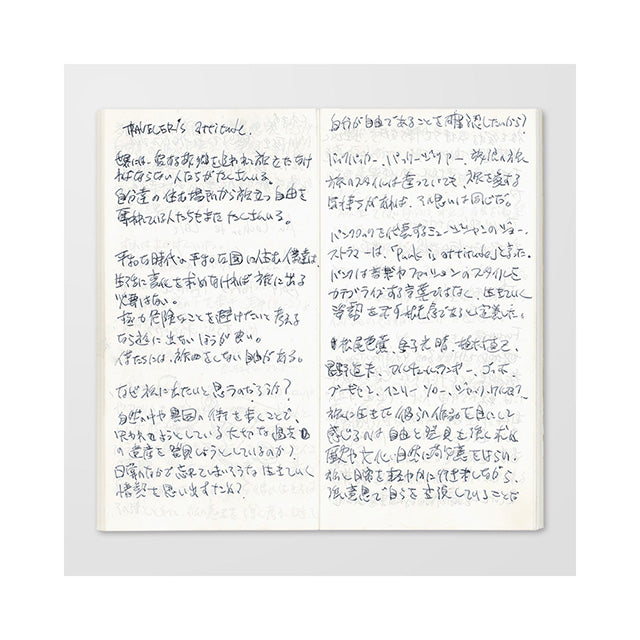 TRAVELER'S attitude.
世界には、愛する故郷を追われ旅立たなけ
ればならない人たちがたくさんいる。
自分達の住む場所から旅立つ自由を
奪われている人たちもまたたくさんいる。
平和な時代の平和な国に住む僕達は、
生活に変化を求めなければ旅に出る
必要はない。
極力危険なことを避けたいと考える
なら旅に出ないほうが良い。
僕たちには、旅をしない自由がある。
なぜ旅に出たいと思うのだろうか?
自然の中や異国の街を歩くことで、
失われようとしている大切な過去
の遺産を発見しようとしているのか?
日常のなかで忘れてしまいそうな生きていく
情熱を思い出すため?
自分が自由であることを確認したいから?
バックパッカー、パッカー
旅のスタイルは違っていても、旅を愛する
気持ちがあれば、その思いは同じだ。
パンクロックを代表するミュージシャンのジョー・
ストラマーは、「Punk is attitude」と言った。
パンクは音楽やファッションのスタイルを
カテゴライズする言葉ではなく、生きていく
姿勢を示す態度であると定義した。
松尾芭蕉、金子光晴、植村直己、
星野道夫、ゴッホ、
ヘンリー・ソロー、
旅に生きた彼らの作品を目にして
感じるのは自由と発見を強く求め
歴史や文化、自然に敬意をはらい、
旅と日常を軽やかに行き来しながら、
強い意思で自らを表現していることだ